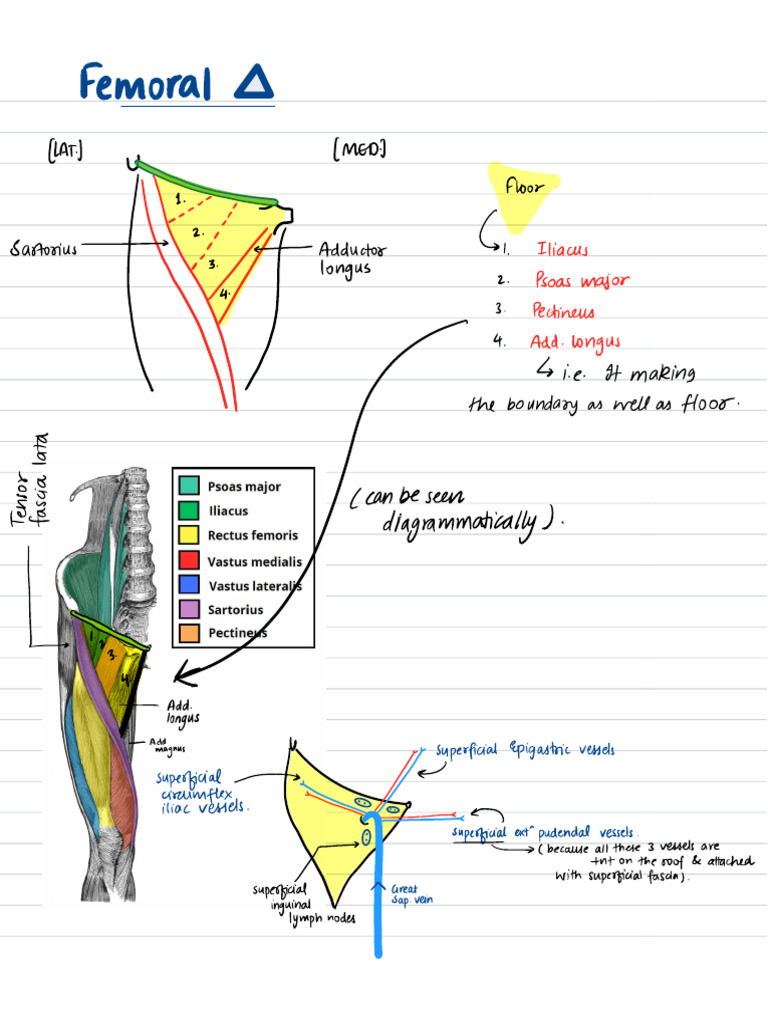 Femoral Δ
[LAT.]
[MED.]
1.
2.
3.
4.
Sartorius
Adductor
longus
Floor
1. Iliacus
2. Psoas major
3. Pectineus
4. Add. longus
i.e. It making
the boundary as well as floor.
(can be seen
diagrammatically).
Tensor
fascia lata
Psoas major
Iliacus
Rectus femoris
Vastus medialis
Vastus lateralis
Sartorius
Pectineus
1
2
3.
4.
Add.
longus
Add
magnus
superficial
circumflex
iliac vessels.
superficial Epigastric vessels
superficial extⁿ pudendal vessels.
(because all these 3 vessels are
tnt on the roof & attached
with superficial fascia).
superficial
inguinal
lymph nodes
Great
Sap. vein